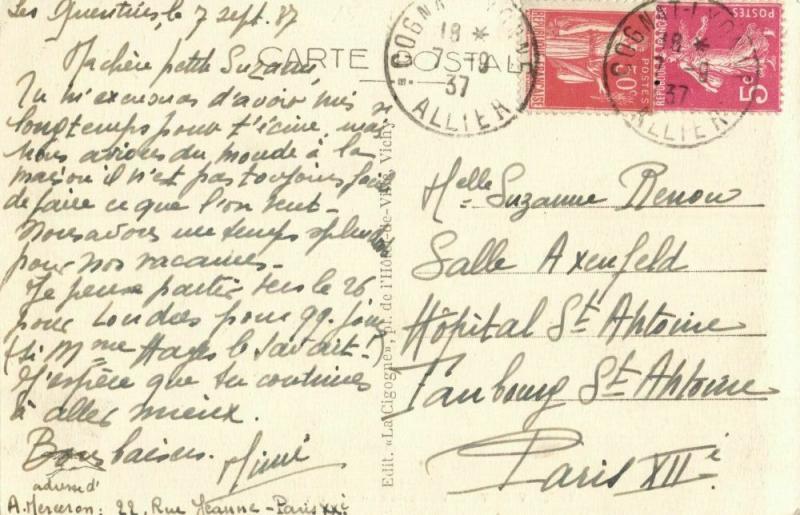 Les Quentins, le 7 sept. 37
CARTE POSTALE
Ma chère petite Suzanne,
Tu m'excuseras d'avoir mis si
longtemps pour t'écrire, mais
nous avions du monde à la
maison il n'est pas toujours facile
de faire ce que l'on veut -
Nous avons un temps splendide
pour nos vacances -
Je pense partir vers le 26
pour Londres pour qq. jours
(si Mme Hayes le savait !)
J'espère que tu continues
à aller mieux.
Bons baisers. Mimi
adresse d'
A. Merceron : 22, Rue Jeanne - Paris XVe
Edit. «La Cigogne», pl. de l'Hôtel-de-Ville, Vichy
COGNAT-LYONNE
18 *
7 - 9
37
ALLIER
REPUBLIQUE FRANÇAISE
POSTES
50c
COGNAT-LYONNE
18 *
7 - 9
37
ALLIER
POSTES
5c
Melle Suzanne Renou
Salle Axenfeld
Hôpital St Antoine
Faubourg St Antoine
Paris XIIe